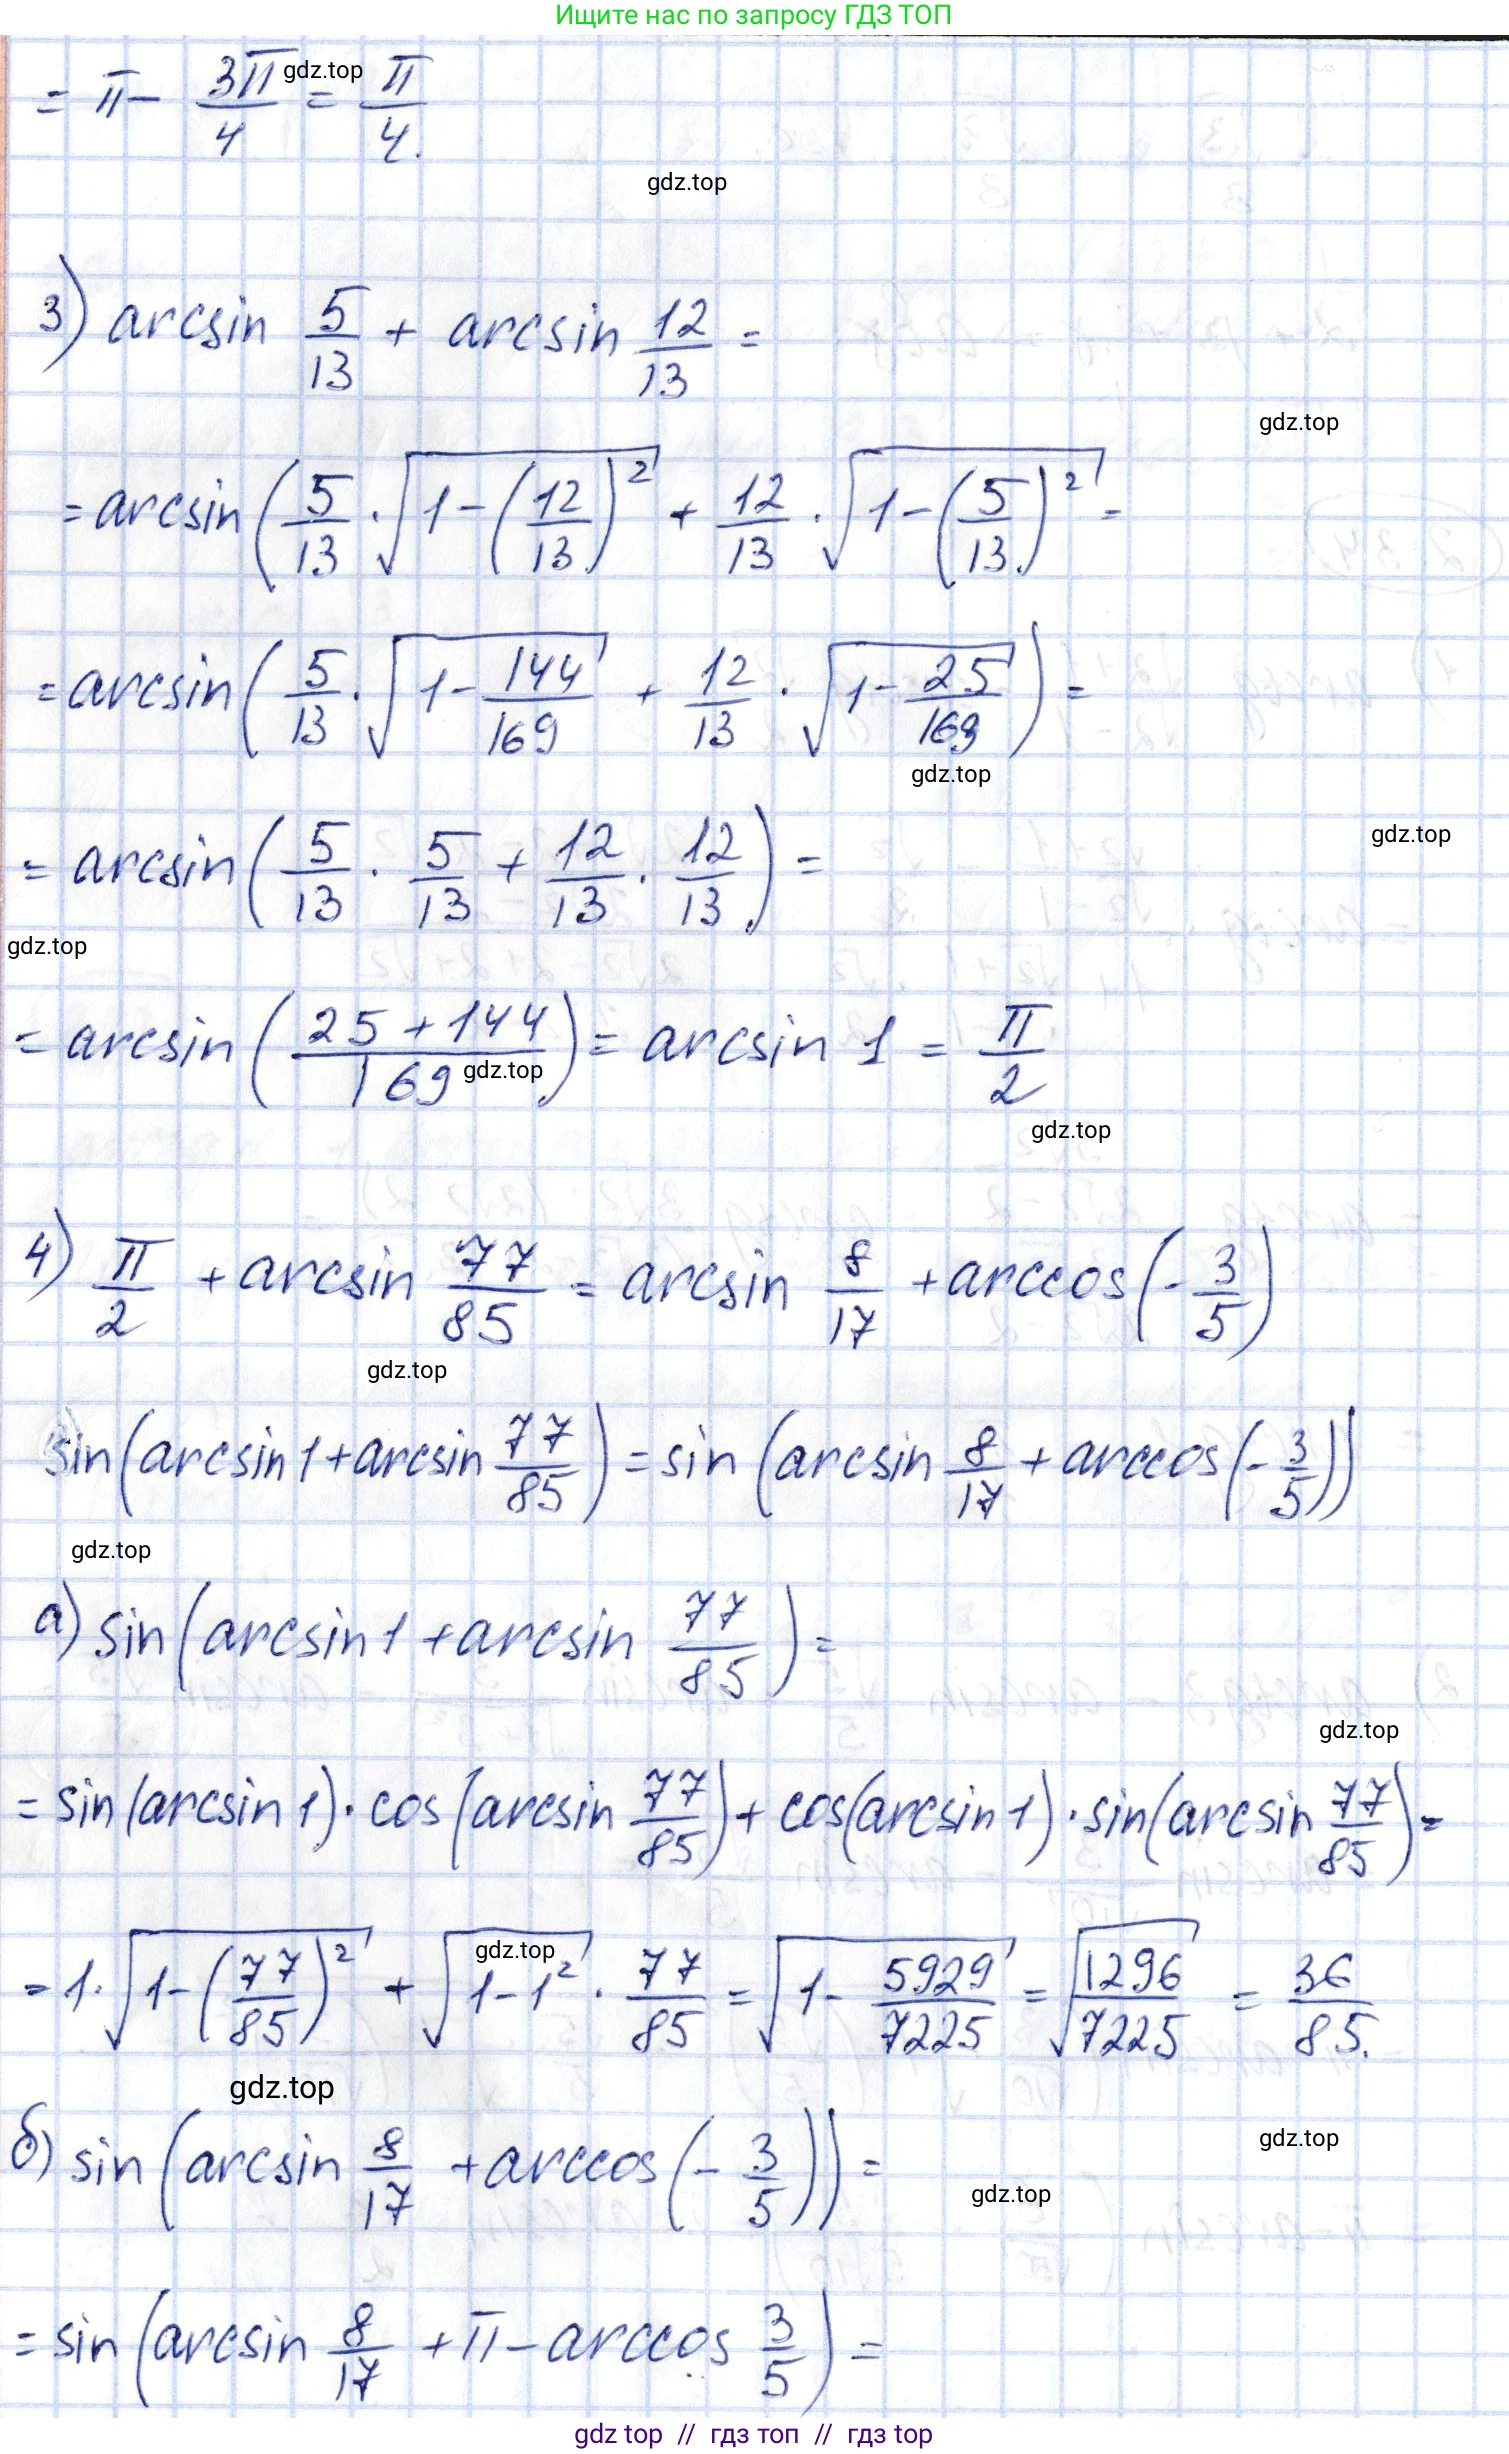 Ищите нас по запросу ГДЗ ТОП
= π - 3π/4 = π/4.
gdz.top
gdz.top
3) arcsin 5/13 + arcsin 12/13 =
gdz.top
= arcsin(5/13 · √(1-(12/13)²) + 12/13 · √(1-(5/13)²) =
= arcsin(5/13 · √(1-144/169) + 12/13 · √(1-25/169)) =
gdz.top
gdz.top
= arcsin(5/13 · 5/13 + 12/13 · 12/13) =
gdz.top
= arcsin((25+144)/169) = arcsin 1 = π/2
gdz.top
gdz.top
4) π/2 + arcsin 77/85 = arcsin 8/17 + arccos(-3/5)
gdz.top
sin(arcsin1+arcsin 77/85) = sin(arcsin 8/17 + arccos(-3/5))
gdz.top
а) sin(arcsin1+arcsin 77/85) =
gdz.top
= sin(arcsin1) · cos(arcsin 77/85) + cos(arcsin1) · sin(arcsin 77/85) =
= 1 · √(1-(77/85)²) + √(1-1²) · 77/85 = √(1-5929/7225) = √(1296/7225) = 36/85.
gdz.top
gdz.top
б) sin(arcsin 8/17 + arccos(-3/5)) =
gdz.top
gdz.top
= sin(arcsin 8/17 + π - arccos 3/5) =
gdz top // гдз топ // гдз top